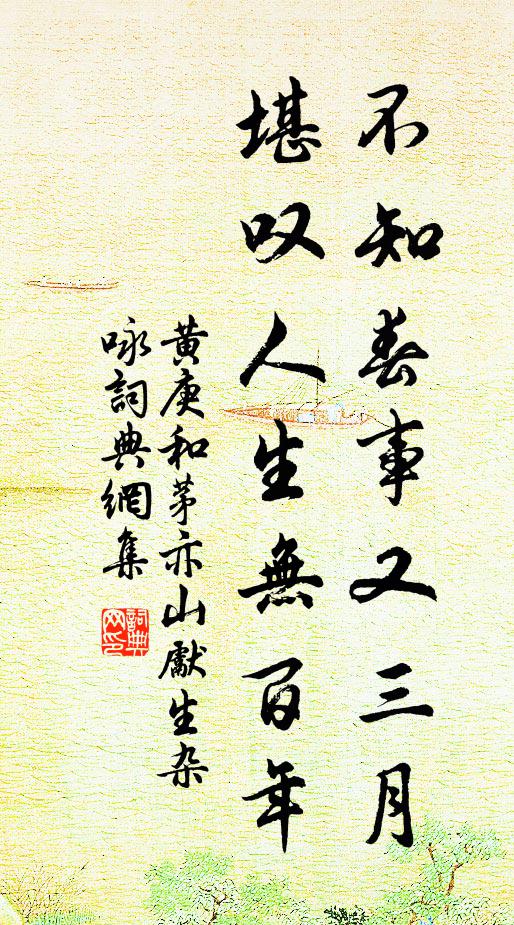 不知春事又三月
堪叹人生無百年
黄庚和茅亦山獻生杂
咏詞典網集
詞典网印